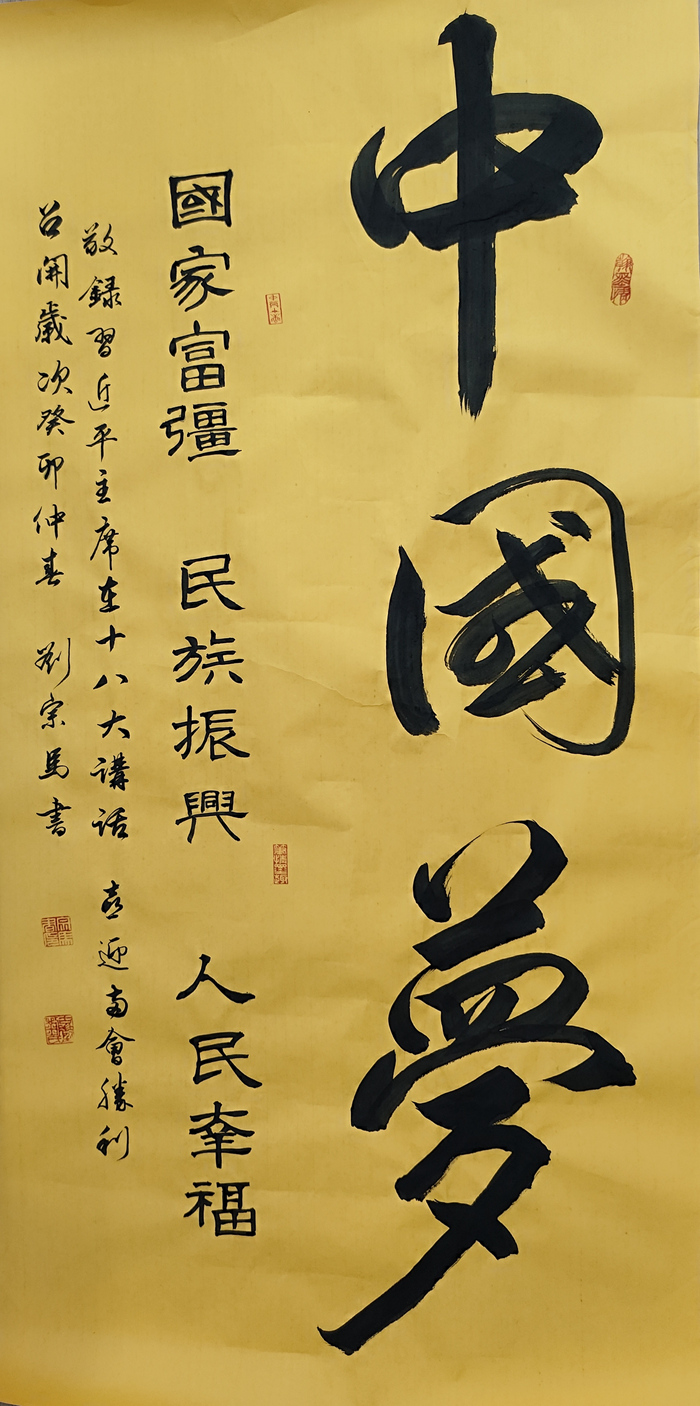 中國夢
國家富彊 民族振興 人民幸福
敬録習近平主席在十八大講話 喜迎两會勝利
召開歲次癸卯仲春 劉宗馬書